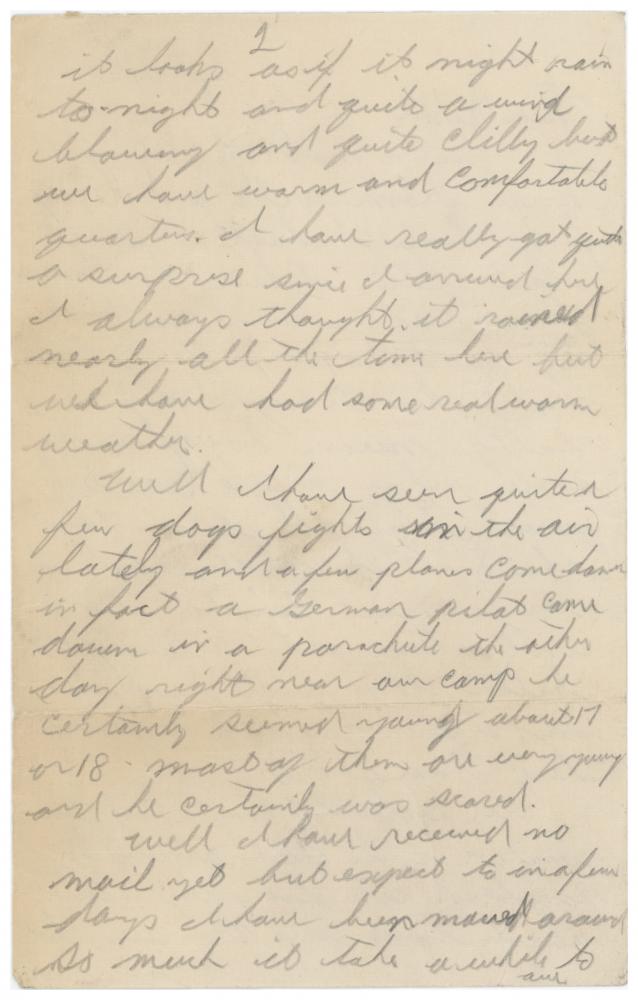 2
it looks as if it might rain
to-night and quite a wind
blowing and quite Chilly but
we have warm and Comfortable
quarters. I have really got quite
a surprise since I arrived here
I always thought it rained
nearly all the time here but
we have had some real warm
weather.
Well I have seen quite a
few dogs fights in the air
lately and a few planes Come down
in fact a German pilot Came
down in a parachute the other
day right near our Camp he
Certainly seemed young about 17
or 18 - most of them are very young
and he certainly was scared.
Well I have received no
mail yet but expect to in a few
days I have been moved around
so much it take awhile to